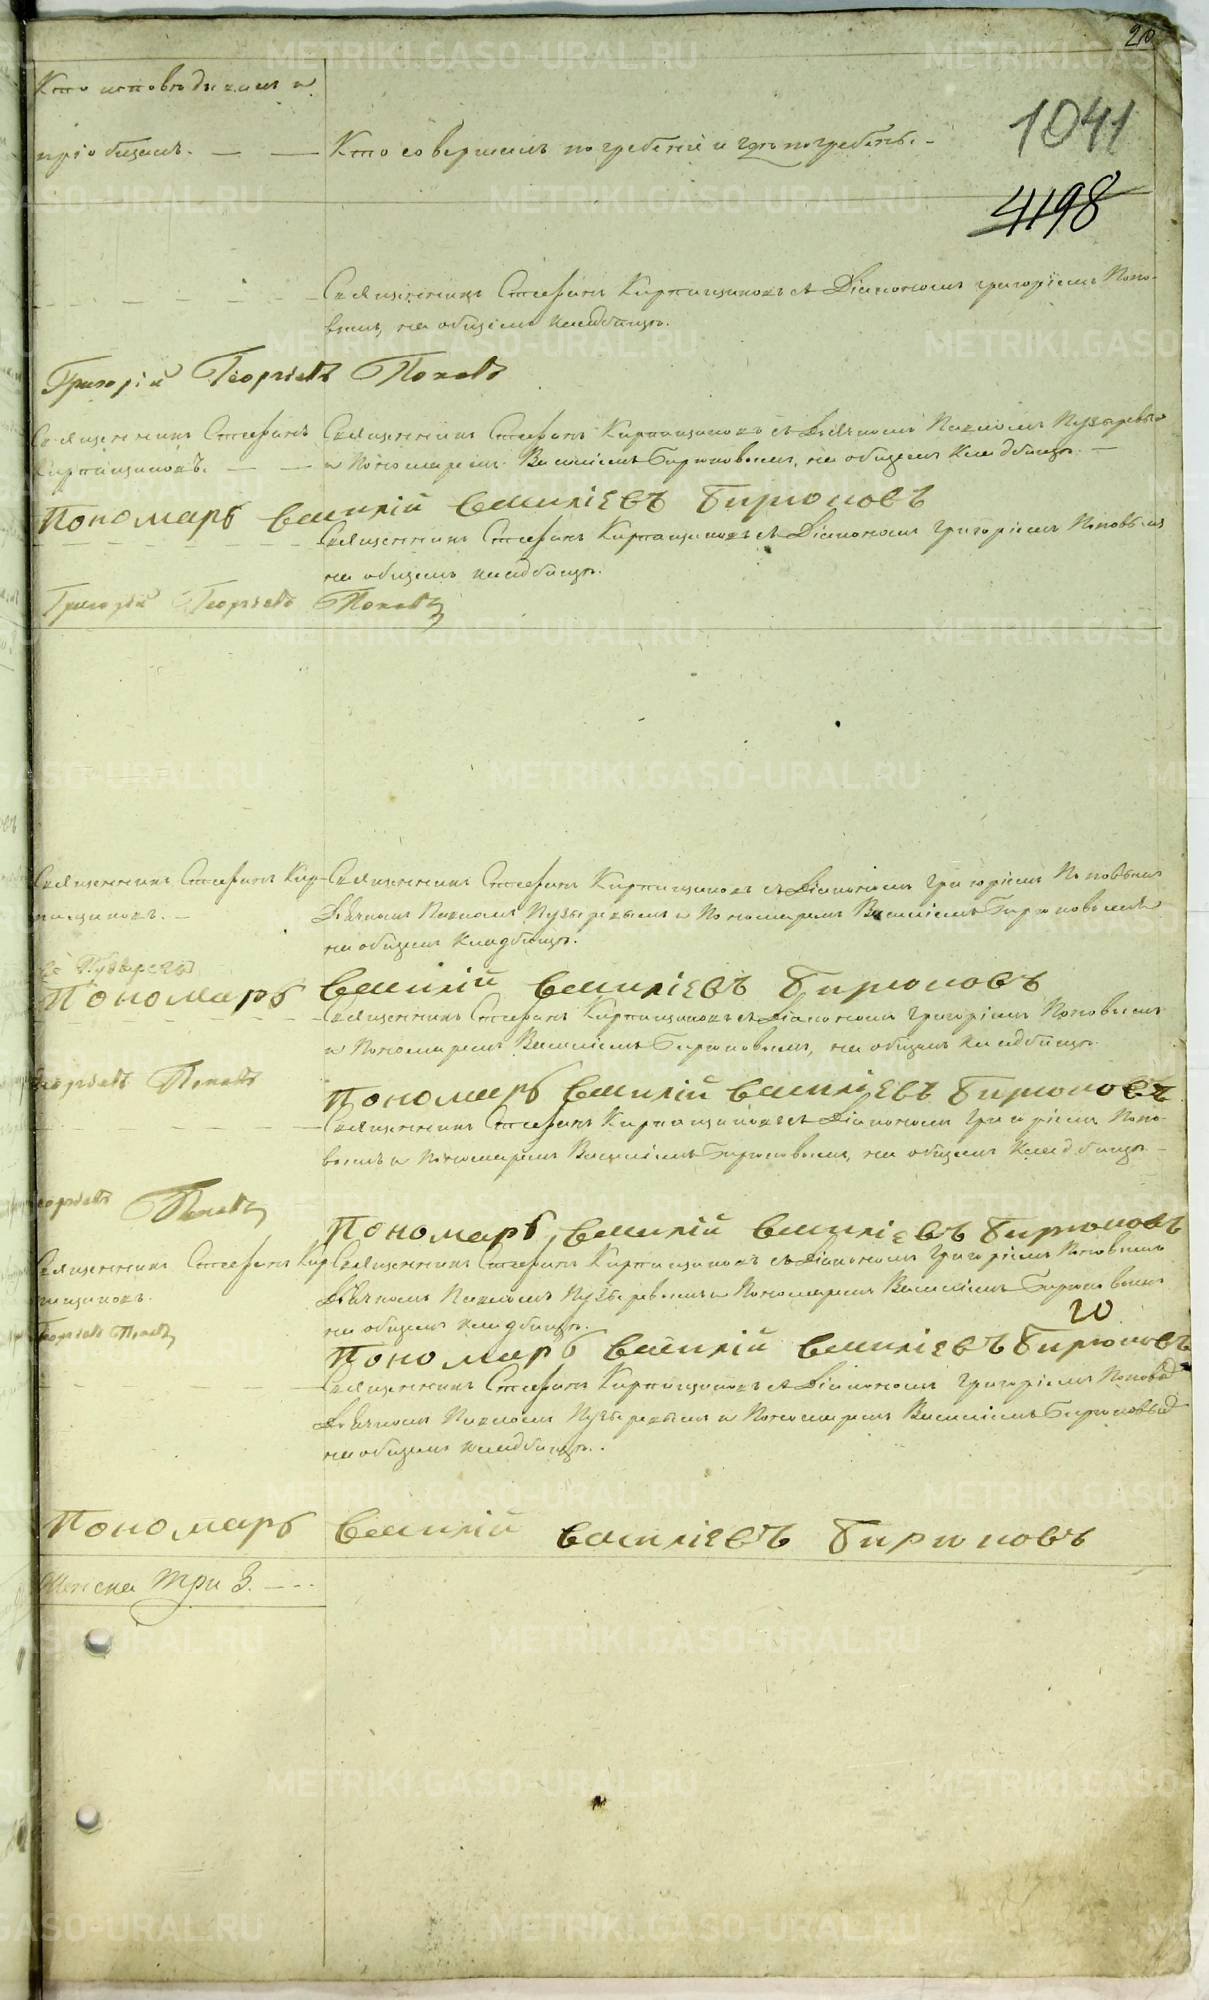 20
Кто исповѣдывалъ и
1041
пріобщалъ. — — Кто совершалъ погребеніе и гдѣ погребены. -
4198
Священникъ Стефанъ Кирпищиковъ съ Діакономъ Григоріемъ Попо-
вымъ, на общемъ кладбищѣ.
Григорій Георгіевъ Поповъ
Священникъ Стефанъ Священникъ Стефанъ Кирпищиковъ съ Дьячкомъ Павломъ Пузыревымъ
Кирпищиковъ. — — и Пономаремъ Василіемъ Бирюковымъ, на общемъ кладбищѣ. —
Пономарь Василій Василіевъ Бирюковъ
Священникъ Стефанъ Кирпищиковъ съ Діакономъ Григоріемъ Поповымъ
на общемъ кладбищѣ.
Григорій Георгіевъ Поповъ
Священникъ Стефанъ Кир- Священникъ Стефанъ Кирпищиковъ съ Діакономъ Григоріемъ Поповымъ
пищиковъ. — Дьячкомъ Павломъ Пузыревымъ и Пономаремъ Василіемъ Бирюковымъ
на общемъ кладбищѣ.
Пузыревъ
Пономарь Василій Василіевъ Бирюковъ
Священникъ Стефанъ Кирпищиковъ съ Діакономъ Григоріемъ Поповымъ
и Пономаремъ Василіемъ Бирюковымъ, на общемъ кладбищѣ.
Георгіевъ Поповъ
Пономарь Василій Василіевъ Бирюковъ
Священникъ Стефанъ Кирпищиковъ съ Діакономъ Григоріемъ Попо-
вымъ и Пономаремъ Василіемъ Бирюковымъ, на общемъ кладбищѣ. —
еоргіевъ Поповъ
Пономарь Василій Василіевъ Бирюковъ
Священникъ Стефанъ Кир Священникъ Стефанъ Кирпищиковъ съ Діакономъ Григоріемъ Поповымъ
пищиковъ. Дьячкомъ Павломъ Пузыревымъ и Пономаремъ Василіемъ Бирюковымъ
на общемъ кладбищѣ. 20
Георгіевъ Поповъ
Пономарь Василій Василіевъ Бирюковъ
Священникъ Стефанъ Кирпищиковъ съ Діакономъ Григоріемъ Поповы
Дьячкомъ Павломъ Пузыревымъ и Пономаремъ Василіемъ Бирюковы
на общемъ кладбищѣ.
Пономарь Василій Василіевъ Бирюковъ
Женска три 3. — - -